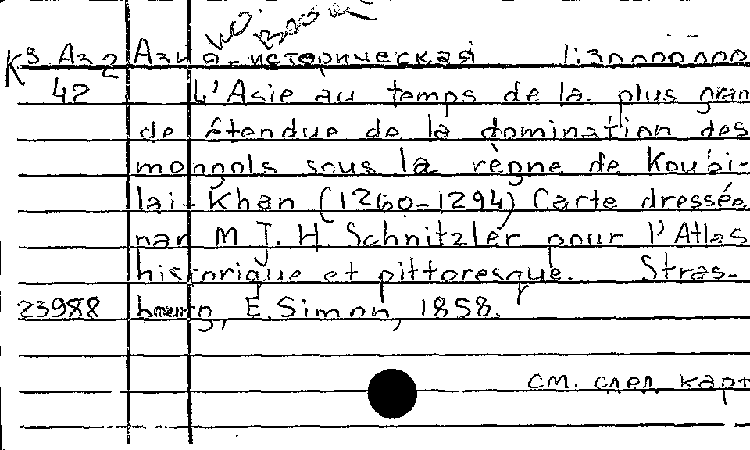 К³ Аз 2 Азия-историческая 1:30000000
42 L'Asie au temps de la plus gran
de étendue de la domination des
mongols sous la règne de Koubi-
lai-Khan (1260-1294) Carte dressée
par M J. H. Schnitzler pour l'Atlas
historique et pittoresque. Stras-
23988 bourg, E. Simon, 1858.
см. след. карт